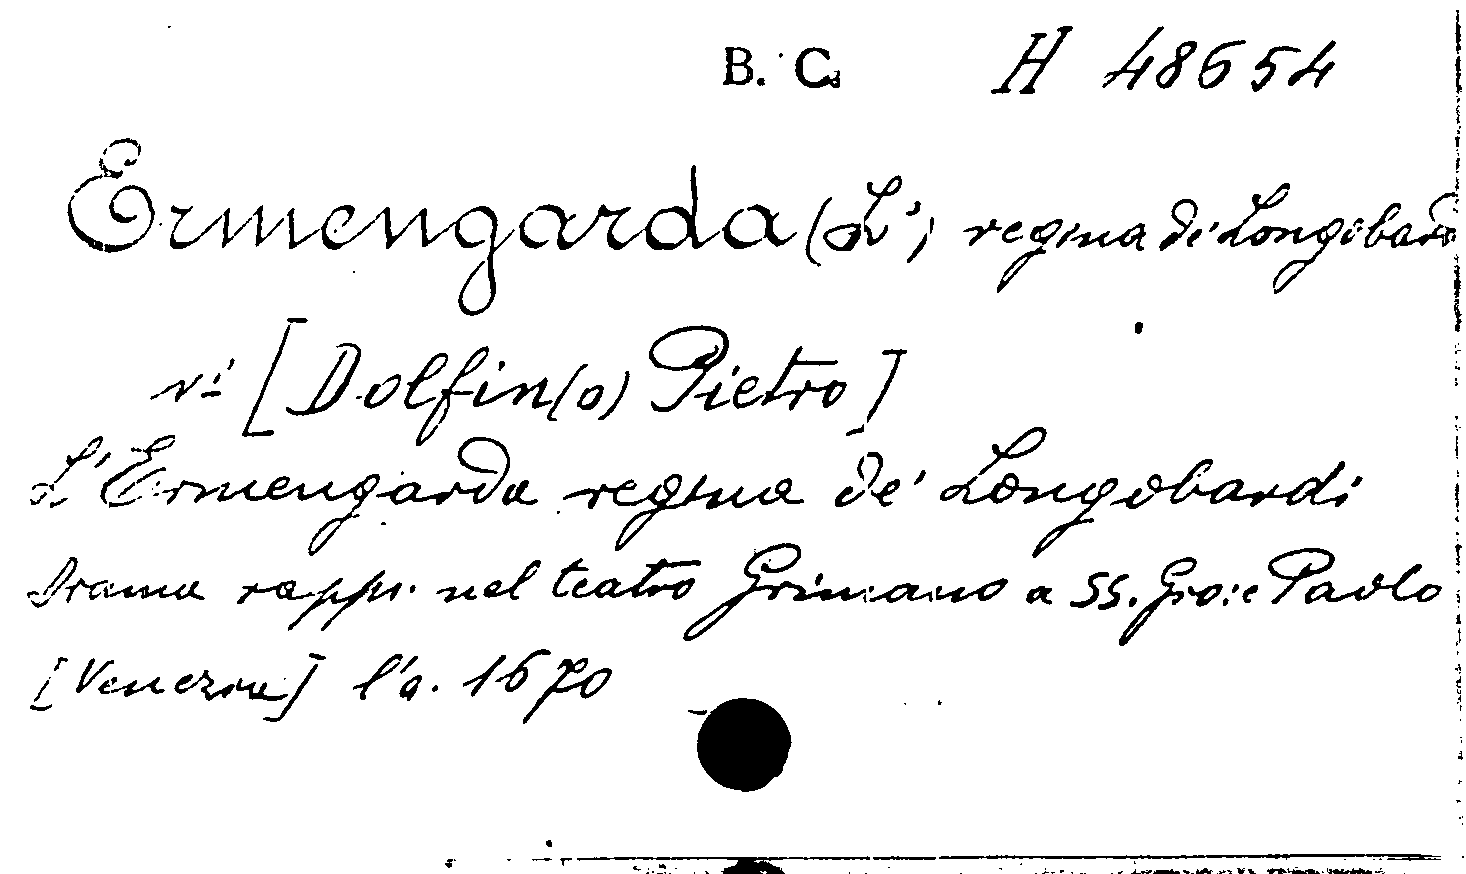 B. C. H 48654
Ermengarda (L') regina de' Longobardi
vi [Dolfin(o) Pietro]
L'Ermengarda regina de' Longobardi
Drama rappr. nel teatro Grimano a SS. Gio: e Paolo
[Venezia] l'a. 1670